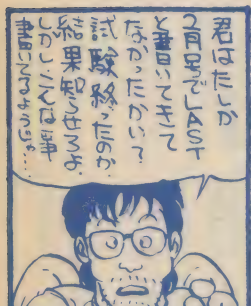 君はたしか
2月号でLAST
と書いてきて
なかったかい?
試験終ったのか
結果知らせろよ.
しかしこんな事
書いてるようじゃ…